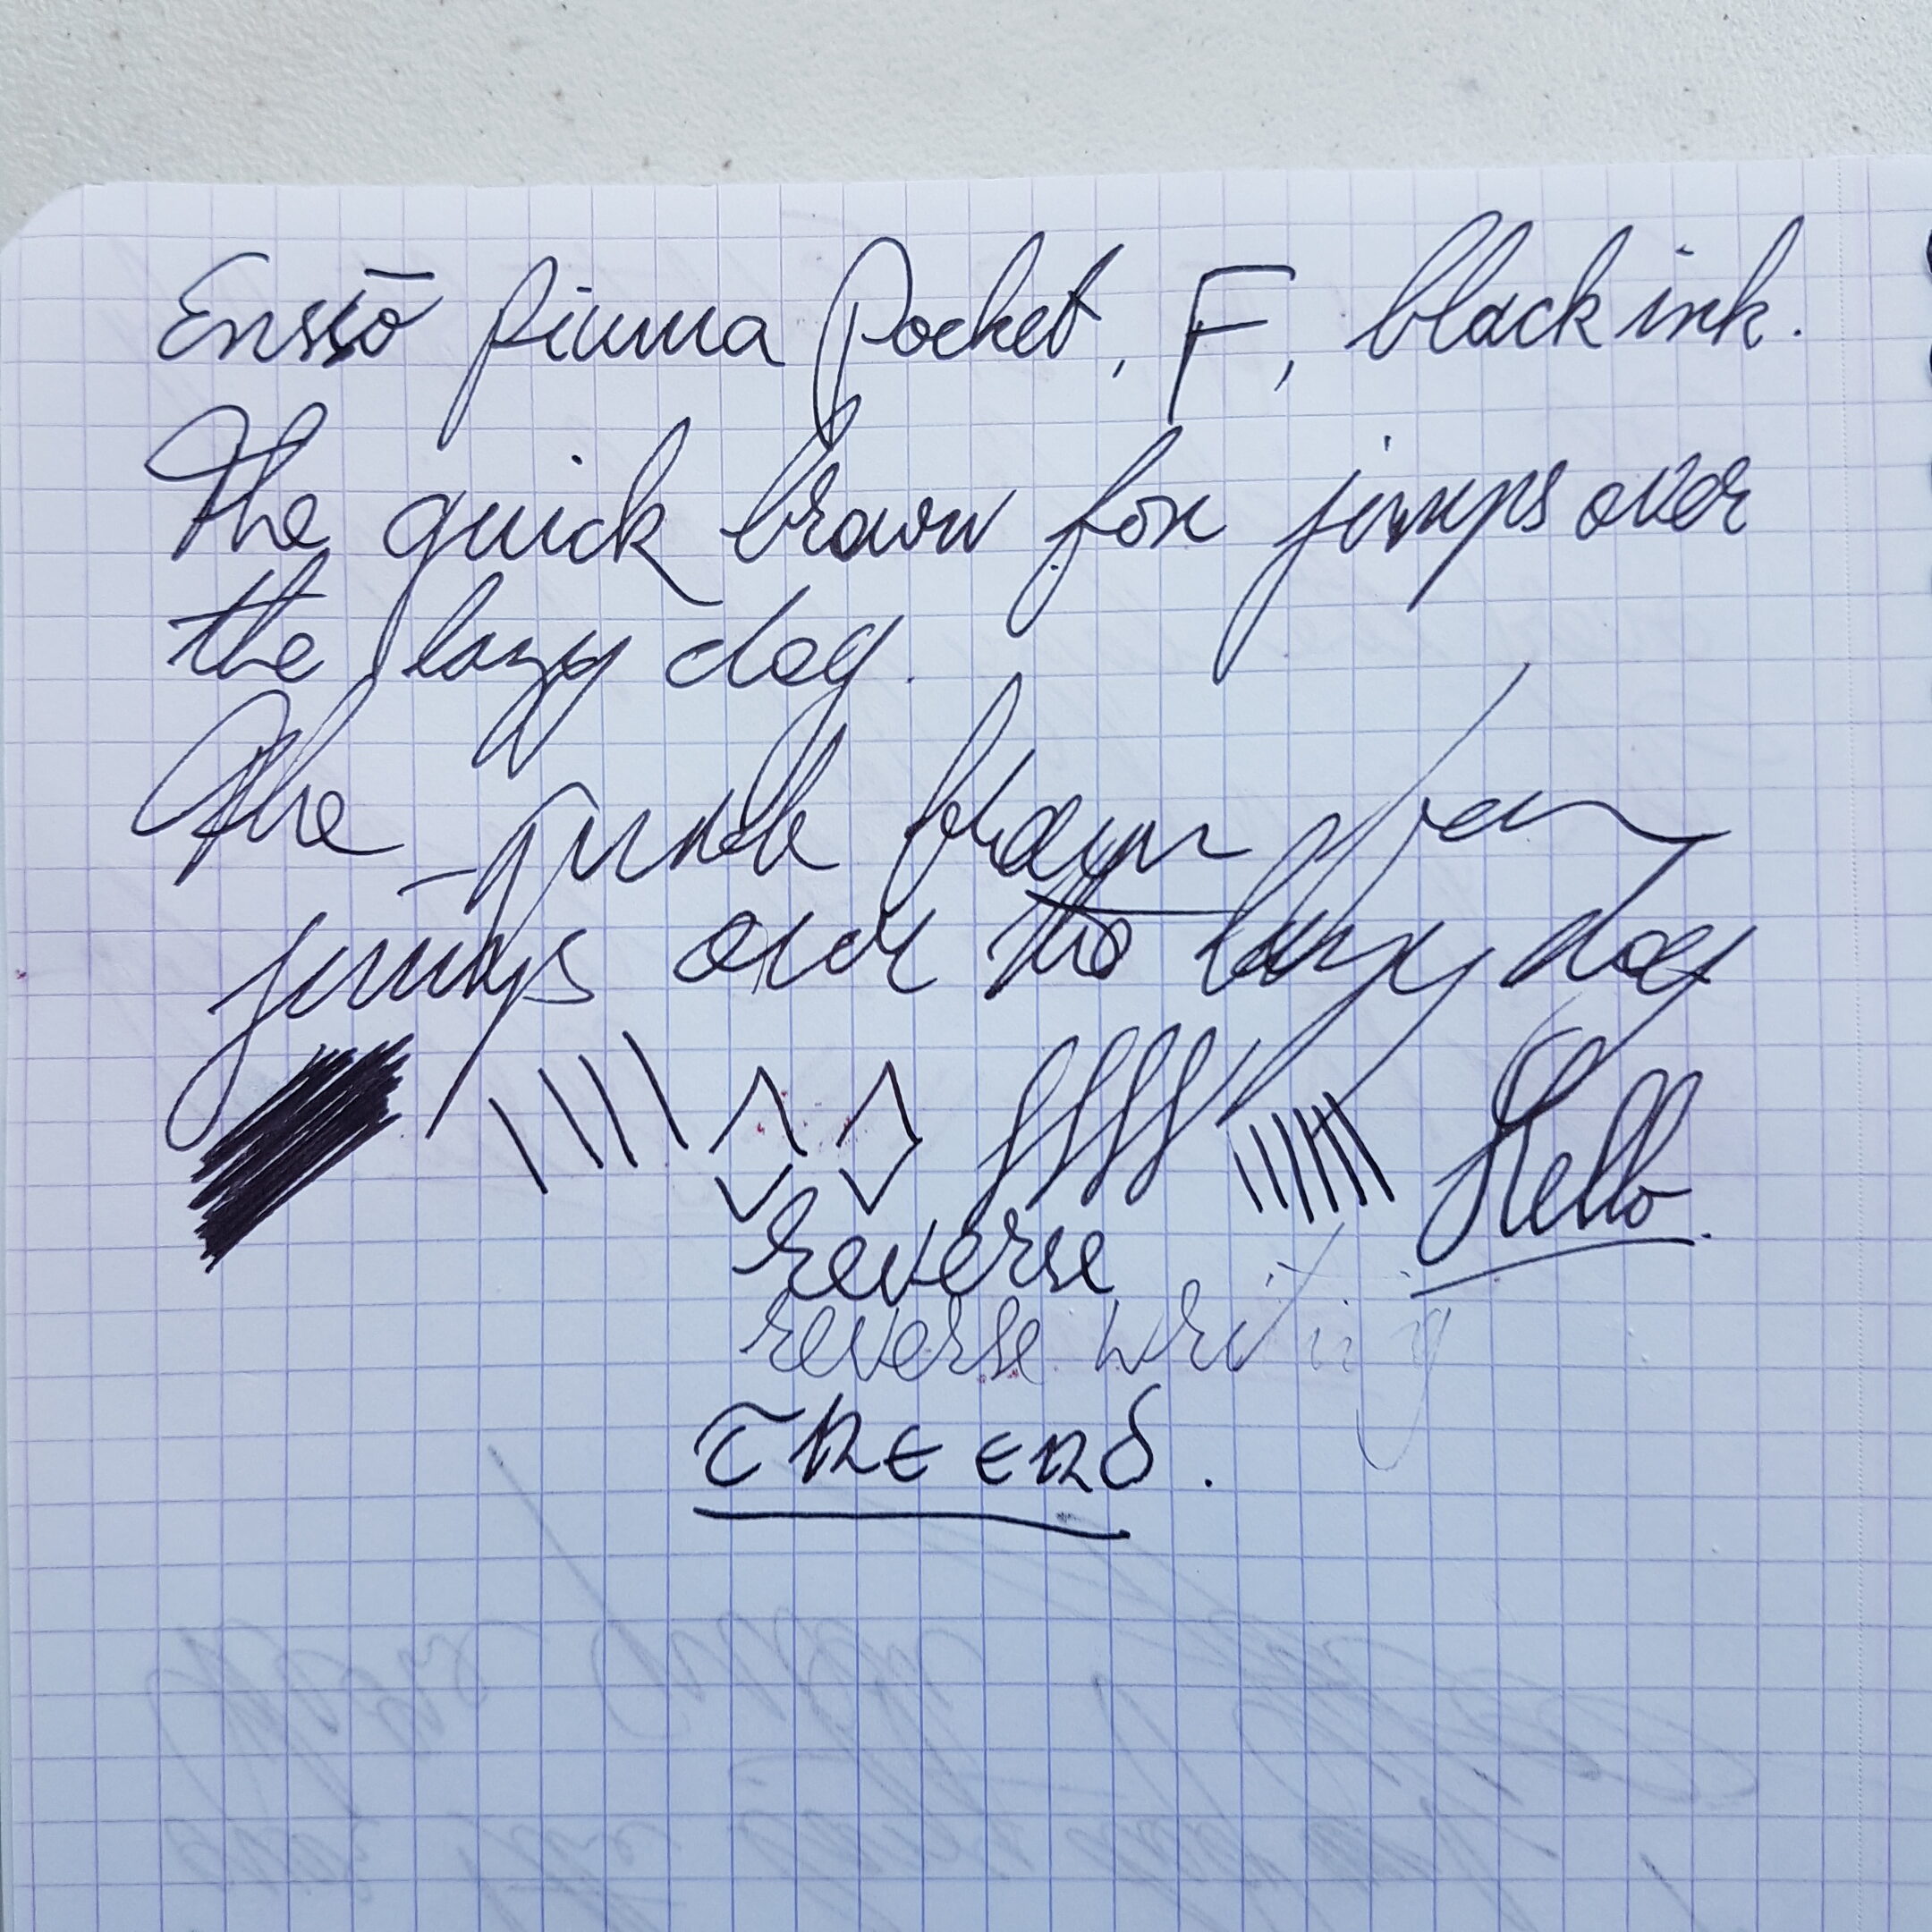 Ensso piuma Pocket, F, black ink.
The quick brown fox jumps over
the lazy dog.
The quick brown fox
jumps over the lazy dog
Hello.
reverse
reverse writing
THE END.